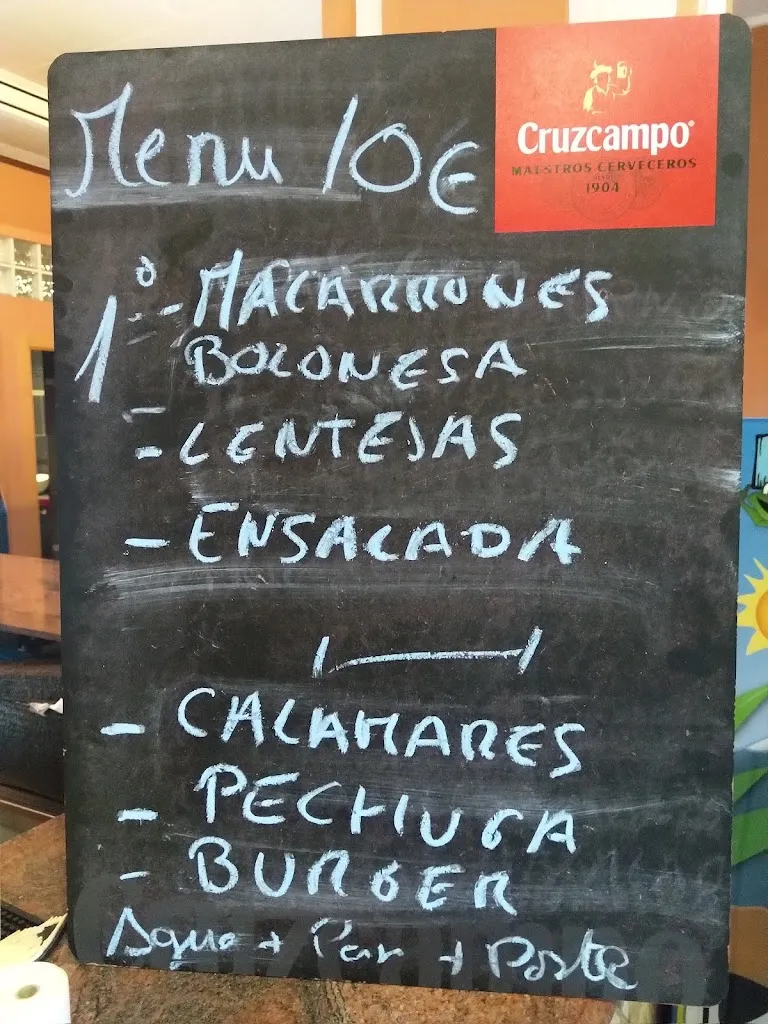 Menu 10€
Cruzcampo®
MAESTROS CERVECEROS
DESDE
1904
1º - MACARRONES
BOLONESA
- LENTEJAS
- ENSALADA
- CALAMARES
- PECHUGA
- BURGER
Agua + Pan + Postre